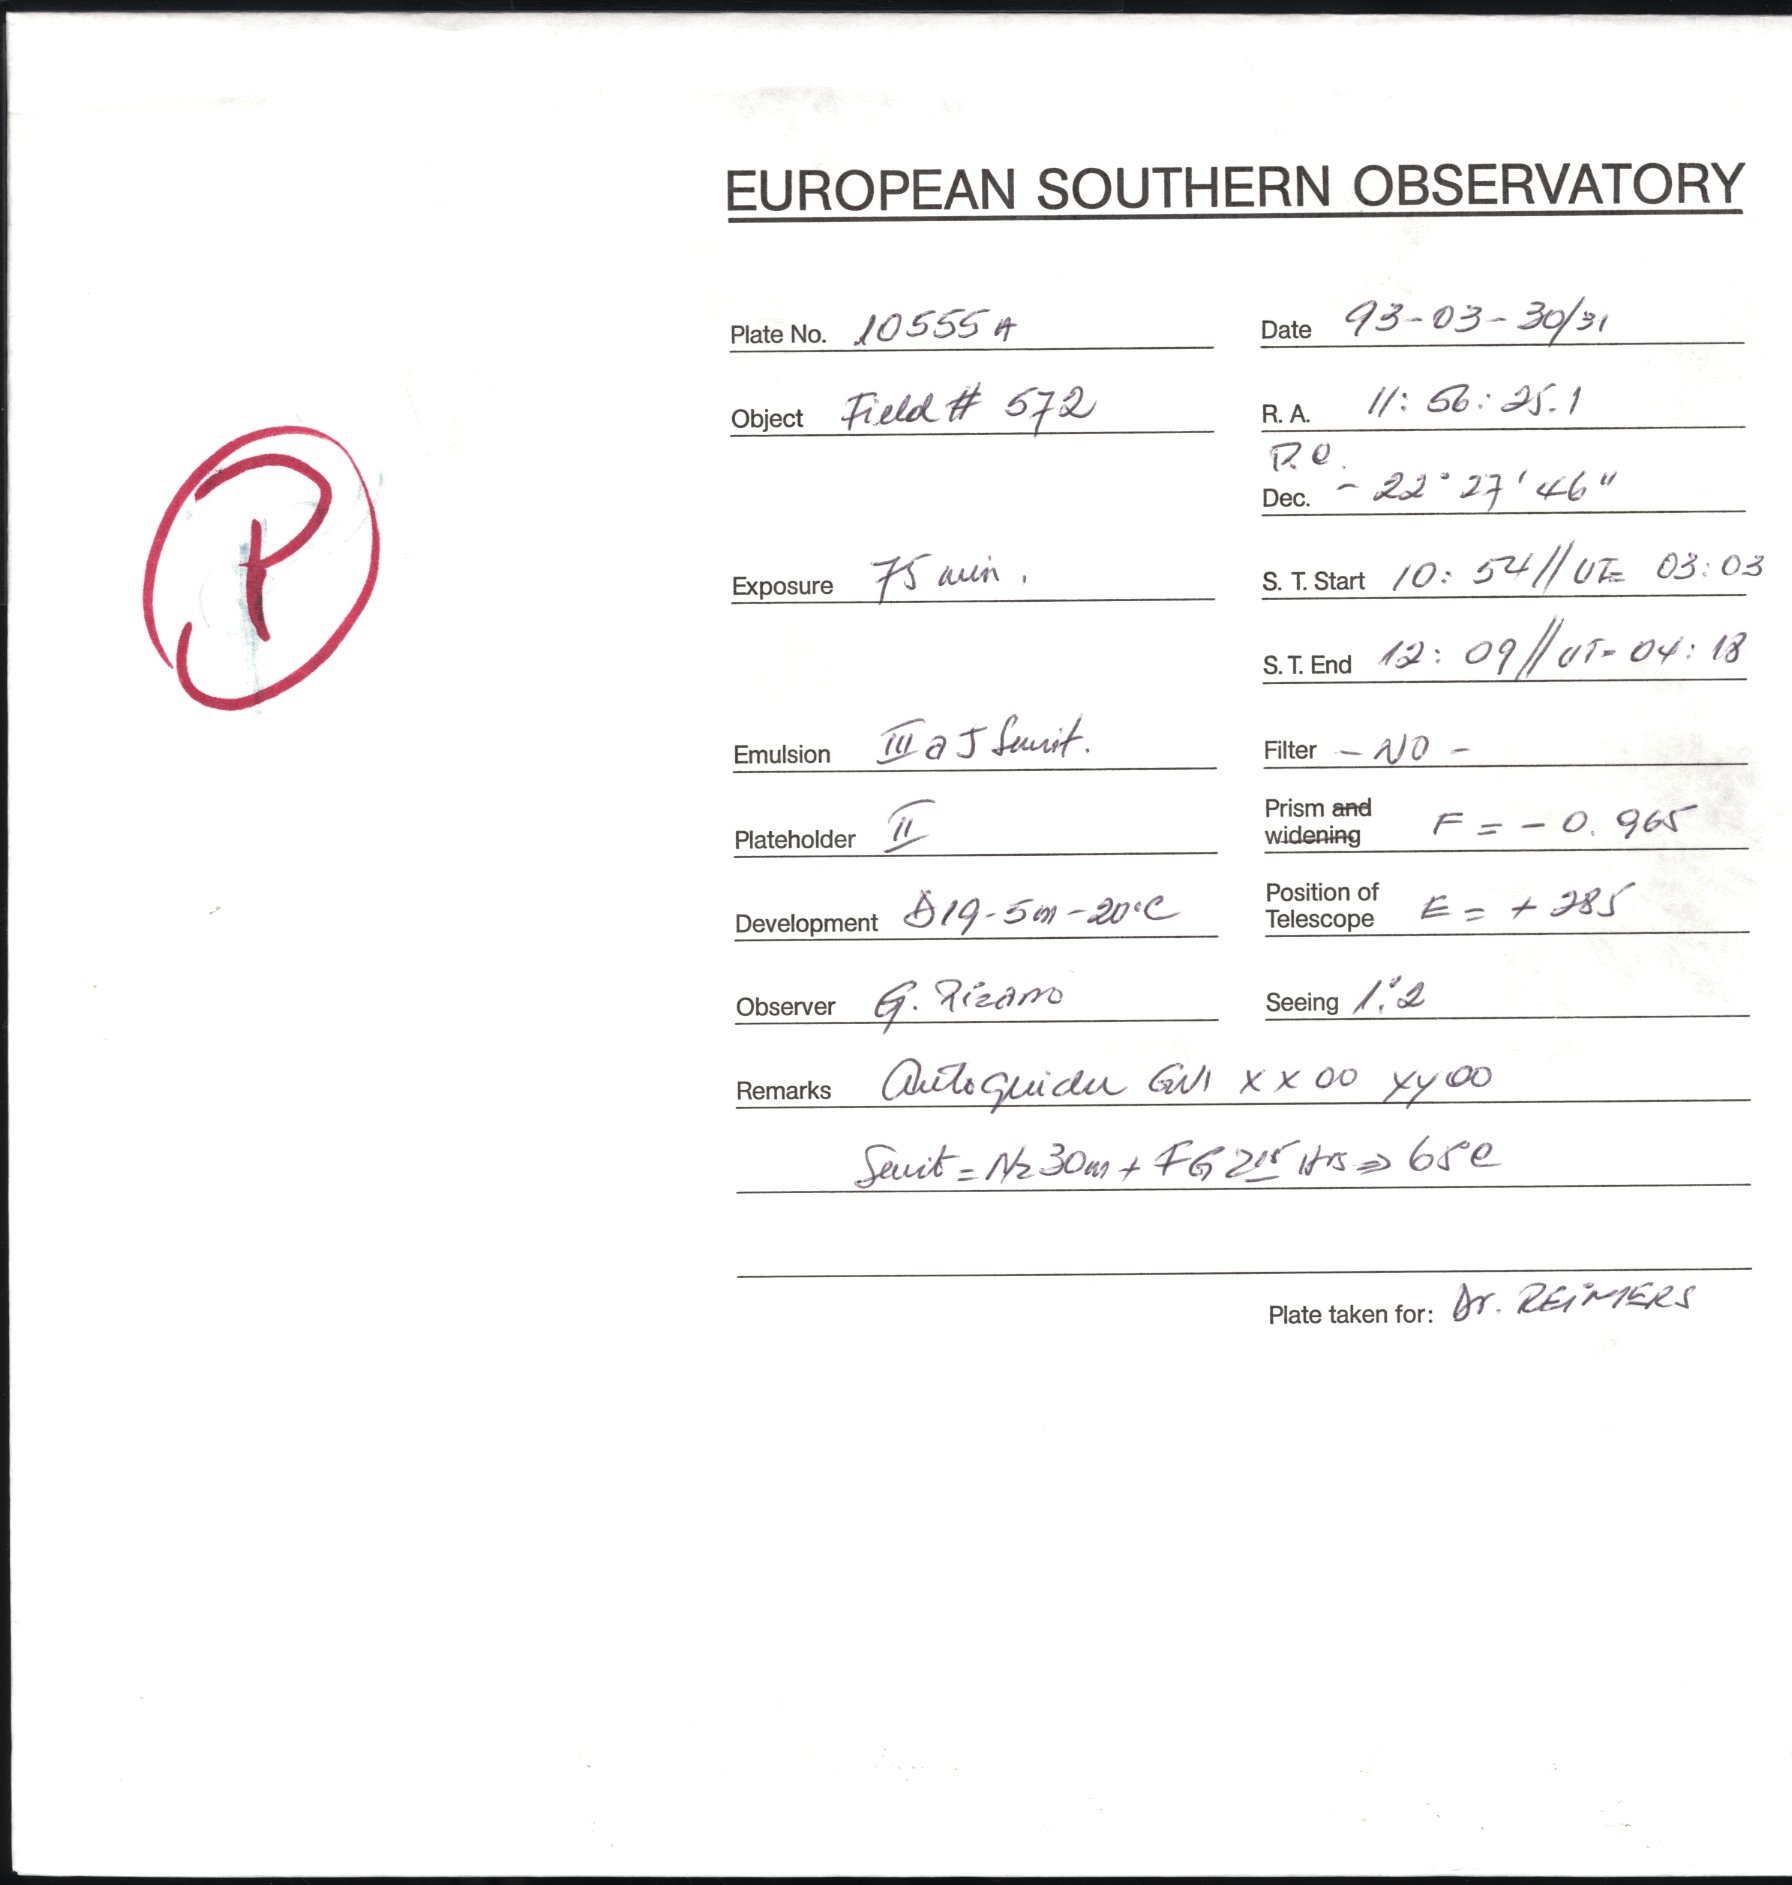 EUROPEAN SOUTHERN OBSERVATORY
Plate No. 10555A Date 93-03-30/31
Object Field # 572 R. A. 11: 56: 25.1
P.C.
Dec. - 22° 27' 46"
Exposure 75 min. S. T. Start 10: 54 // UT= 03:03
S. T. End 12: 09 // UT= 04:18
P
Emulsion III a J Sensit. Filter - NO -
Plateholder II Prism and widening F = - 0.965
Development D19-5m-20°C Position of Telescope E = + 285
Observer G. Pizarro Seeing 1."2
Remarks Autoguider XX00 YY00
Sensit = N2 30m + FG Hrs => 65°C
Plate taken for: Dr. REiMERS